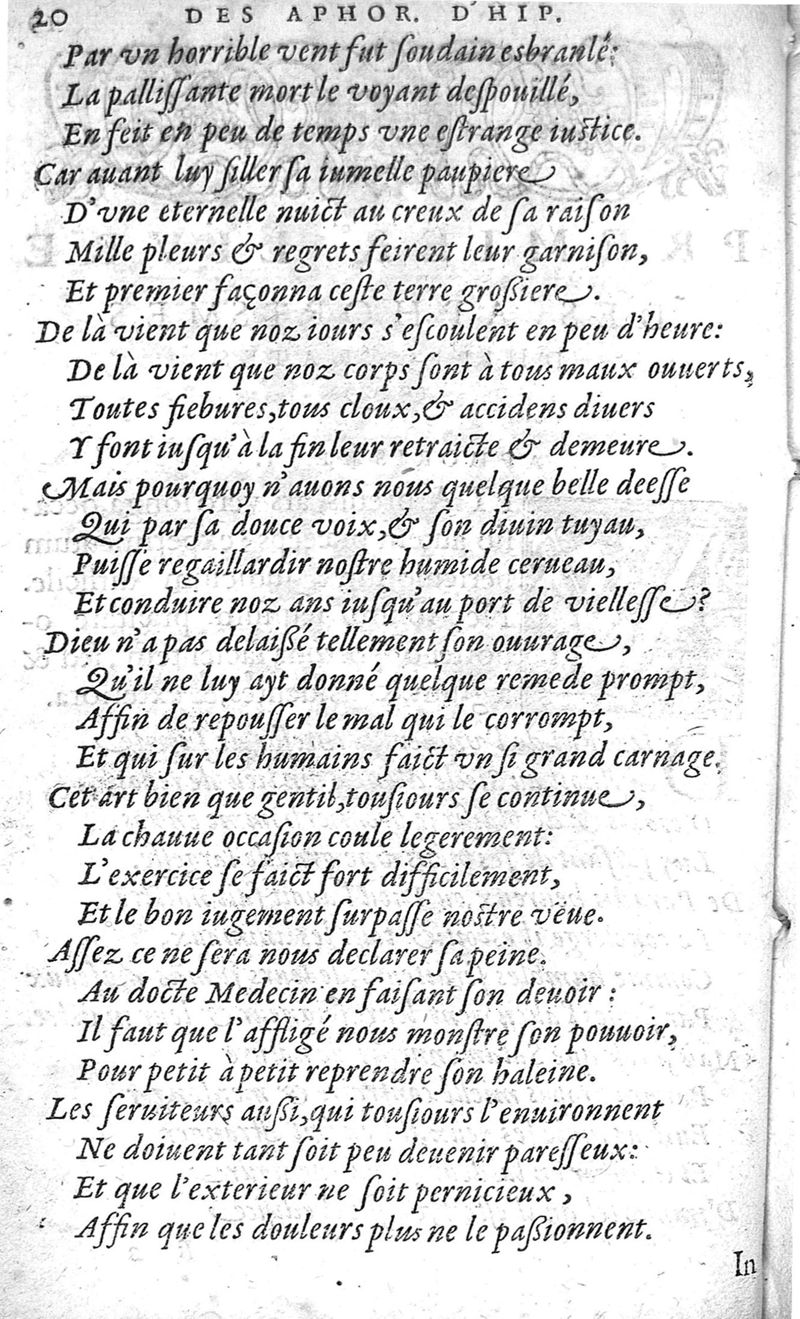 20 DES APHOR. D'HIP.
Par vn horrible vent fut ſoudain esbranlé:
La palliſſante mort le voyant deſpouillé,
En feit en peu de temps vne eſtrange iuſtice.
Car auant luy ſiller ſa iumelle paupiere
D'vne eternelle nuict au creux de ſa raiſon
Mille pleurs & regrets feirent leur garniſon,
Et premier façonna ceſte terre groſsiere.
De là vient que noz iours s'eſcoulent en peu d'heure:
De là vient que noz corps ſont à tous maux ouuerts,
Toutes fiebures, tous cloux, & accidens diuers
Y font iuſqu'à la fin leur retraicte & demeure.
Mais pourquoy n'auons nous quelque belle deeſſe
Qui par ſa douce voix, & ſon diuin tuyau,
Puiſſe regaillardir noſtre humide cerueau,
Et conduire noz ans iuſqu'au port de vielleſſe?
Dieu n'a pas delaiſsé tellement ſon ouurage,
Qu'il ne luy ayt donné quelque remede prompt,
Affin de repouſſer le mal qui le corrompt,
Et qui ſur les humains faict vn ſi grand carnage.
Cet art bien que gentil, touſiours ſe continue,
La chauue occaſion coule legerement:
L'exercice ſe faict fort difficilement,
Et le bon iugement ſurpaſſe noſtre veue.
Aſſez ce ne ſera nous declarer ſa peine.
Au docte Medecin en faiſant ſon deuoir:
Il faut que l'affligé nous monſtre ſon pouuoir,
Pour petit à petit reprendre ſon haleine.
Les ſeruiteurs auſsi, qui touſiours l'enuironnent
Ne doiuent tant ſoit peu deuenir pareſſeux:
Et que l'exterieur ne ſoit pernicieux,
Affin que les douleurs plus ne le paſsionnent.
In